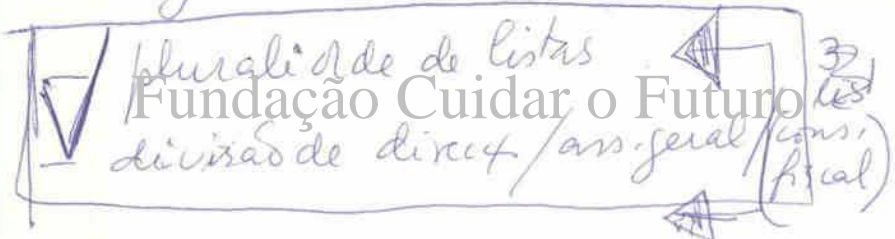 pluralidade de listas
Fundação Cuidar o Futuro
divisão de direcç/ass.geral/(cons.
fiscal)